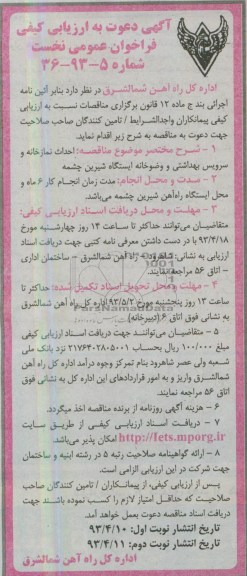 آگهی دعوت به ارزیابی کیفی
فراخوان عمومی نخست
شماره ۵-۹۳-۳۶
اداره کل راه آهن شمالشرق در نظر دارد بنابر آئین نامه
اجرائی بند ج ماده ۱۲ قانون برگزاری مناقصات نسبت به ارزیابی
کیفی پیمانکاران واجدالشرایط / تامین کنندگان صاحب صلاحیت
جهت دعوت به مناقصه به شرح زیر اقدام نماید.
۱ - شرح مختصر موضوع مناقصه: احداث نمازخانه و
سرویس بهداشتی و وضوخانه ایستگاه شیرین چشمه
۲ - مدت و محل انجام: مدت زمان انجام کار ۶ ماه و
محل ایستگاه راه‌آهن شیرین چشمه می‌باشد.
۳ - مهلت و محل دریافت اسناد ارزیابی کیفی:
متقاضیان می‌توانند حداکثر تا ساعت ۱۴ روز چهارشنبه مورخ
۹۳/۴/۱۸ با در دست داشتن معرفی نامه کتبی جهت دریافت اسناد
ارزیابی به نشانی: شاهرود - راه آهن شمالشرق - ساختمان اداری
- اتاق ۵۶ مراجعه نمایند.
۴ - مهلت و محل تحویل اسناد تکمیل شده: حداکثر تا
ساعت ۱۳ روز پنجشنبه مورخ ۹۳/۵/۲ اداره کل راه آهن شمالشرق
به نشانی فوق اتاق ۶ (دبیرخانه)
۵ - متقاضیان می‌توانند جهت دریافت اسناد ارزیابی کیفی
مبلغ ۱۰۰/۰۰۰ ریال بحساب ۲۱۷۶۴۰۲۸۰۵۰۰۱ نزد بانک ملی
شعبه ولی عصر شاهرود بنام تمرکز وجوه درآمد اداره کل راه آهن
شمالشرق واریز و به امور قراردادهای این اداره کل به نشانی فوق
اتاق ۵۶ مراجعه نمایند.
۶ - هزینه آگهی روزنامه از برنده مناقصه اخذ میگردد.
۷ - دریافت اسناد ارزیابی کیفی از طریق سایت
http://Iets.mporg.ir امکان پذیر می‌باشد.
۸ - ارائه گواهینامه صلاحیت رتبه ۵ در رشته ابنیه و ساختمان
جهت شرکت در این ارزیابی الزامی است.
پس از ارزیابی کیفی، از پیمانکاران / تامین کنندگان صاحب
صلاحیت که حداقل امتیاز لازم را کسب نموده باشند جهت
دریافت اسناد مناقصه دعوت بعمل خواهد آمد.
تاریخ انتشار نوبت اول: ۹۳/۴/۱۰
تاریخ انتشار نوبت دوم: ۹۳/۴/۱۱
اداره کل راه آهن شمالشرق